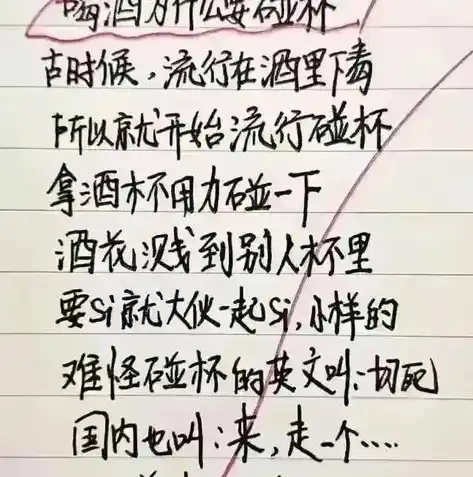 喝酒为什么要碰杯
古时候，流行在酒里下毒
所以就开始流行碰杯
拿酒杯用力碰一下
酒花溅到别人杯里
要si就大伙一起si,小样的
难怪碰杯的英文叫:切死
国内也叫:来,走一个····